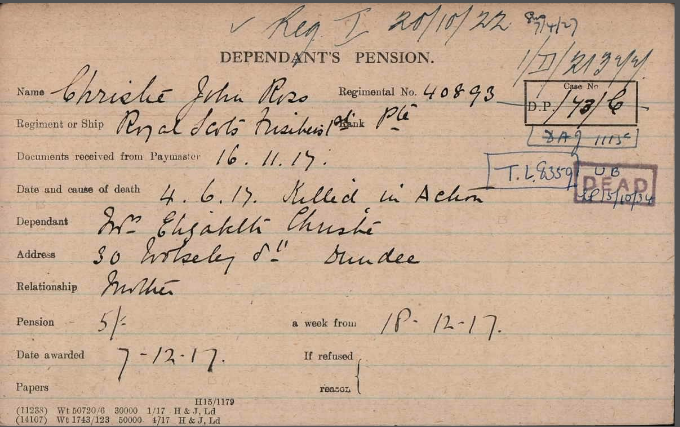 ✓ Reg I 20/10/22
7/4/27
DEPENDANT'S PENSION.
Name Christie John Ross Regimental No. 40893
Case No.
D.P. 1/43/C
Regiment or Ship Royal Scots Fusiliers 1st Rank Pte
Documents received from Paymaster 16.11.17.
T.L. 8359
DEAD
Date and cause of death 4.6.17. Killed in Action
Dependant Mrs Elizabeth Christie
Address 30 Wolseley St Dundee
Relationship Mother
Pension 5/- a week from 18-12-17.
Date awarded 7-12-17. If refused
Papers reason
H15/1179
(11238) Wt 50720/6 30000 1/17 H & J, Ld
(14107) Wt 1743/123 50000 4/17 H & J, Ld